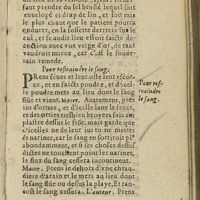 faut prendre du sel bouïlé lequel soit
enuelopé en drap de lin, et soit mis
le plus chaut que le patient pourra
endurer, en la fossette derriere sur le
col, et si audit lieu estoit faicte de-
coction auec vne verge d'or, et tant
vaudroit mieux, car c'est le souue-
rain remede.
Pour restraindre le sang.
PRens feues et leur oste leur escor-
ce, et en fais poudre, et d'icel-
le poudre mets au lieu dont le sang
flue et vient. Macer. Autrement, prens
ou d'orties, et les broye, et leurs
ou des orties broyées estant mis en em-
plastre dessus le frõt: mais garde que
d'icelles ne demeure ius ou ne entre
es narines, car le sang en sortiroit plus
abondamment, et si ses choses dessus
dictes ne touchent point les narines,
le flux du sang cessera incontinent.
Macer. Prens le dehors d'vne chau-
diere d'airain et le mets au lieu dont
le sang flue ou dessus la playe, Et tan-
tost le sang cessera. L'auteur. Prens
Pour res-
traindre
le sang.